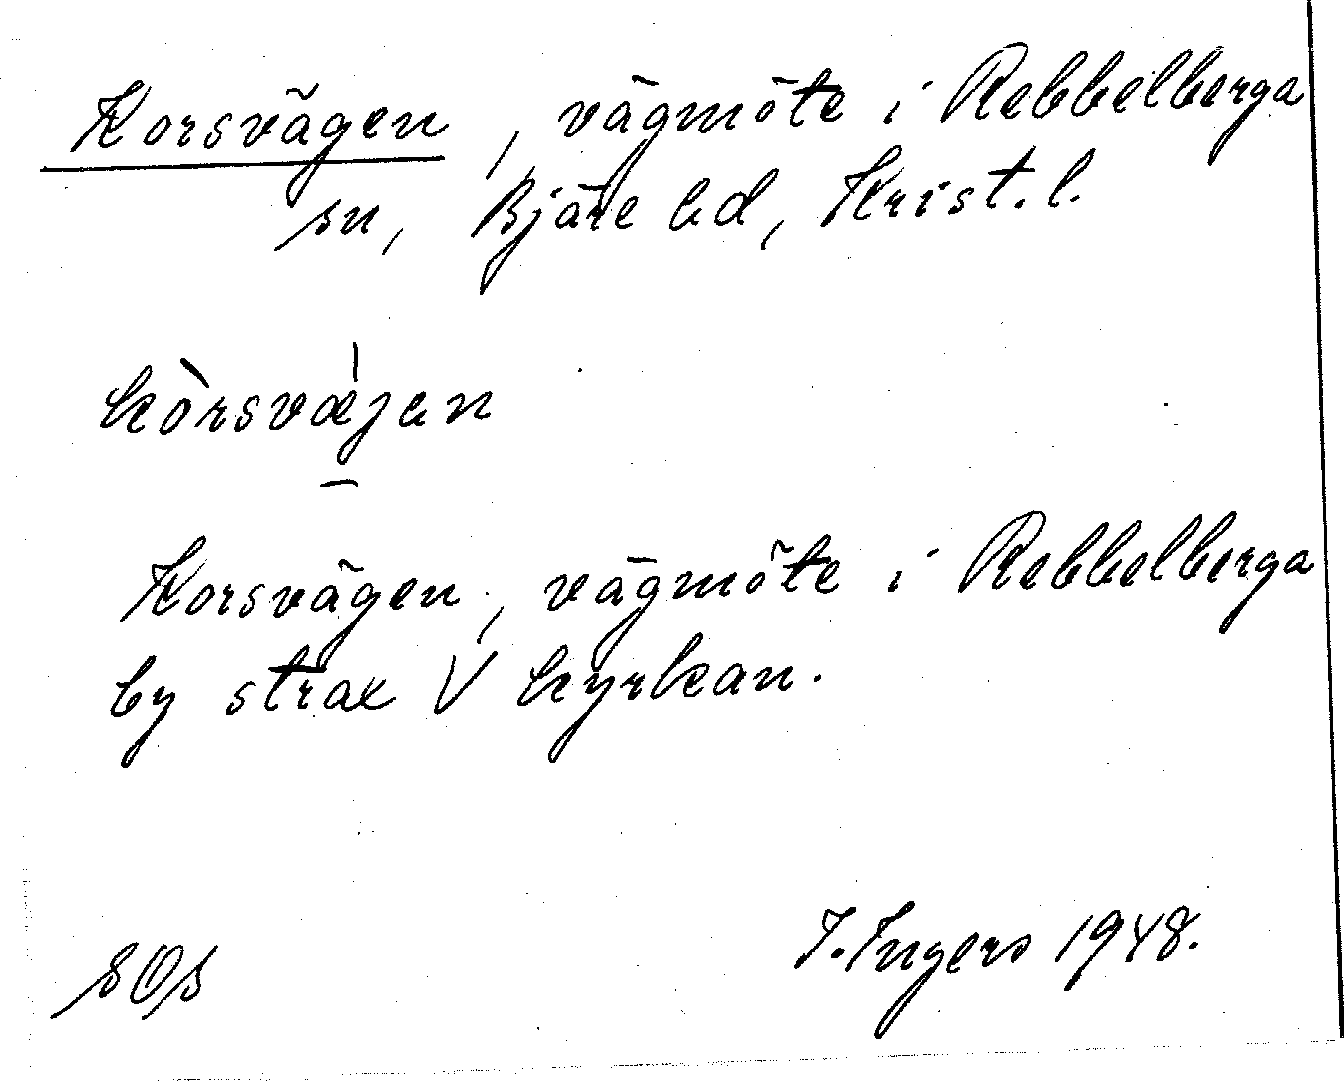 Korsvägen, vägmöte i Rebbelberga
sn, Bjäre hd, Krist. l.
kòrsvæ̍jen
Korsvägen, vägmöte i Rebbelberga
by strax V kyrkan.
I. Ingers 1948.